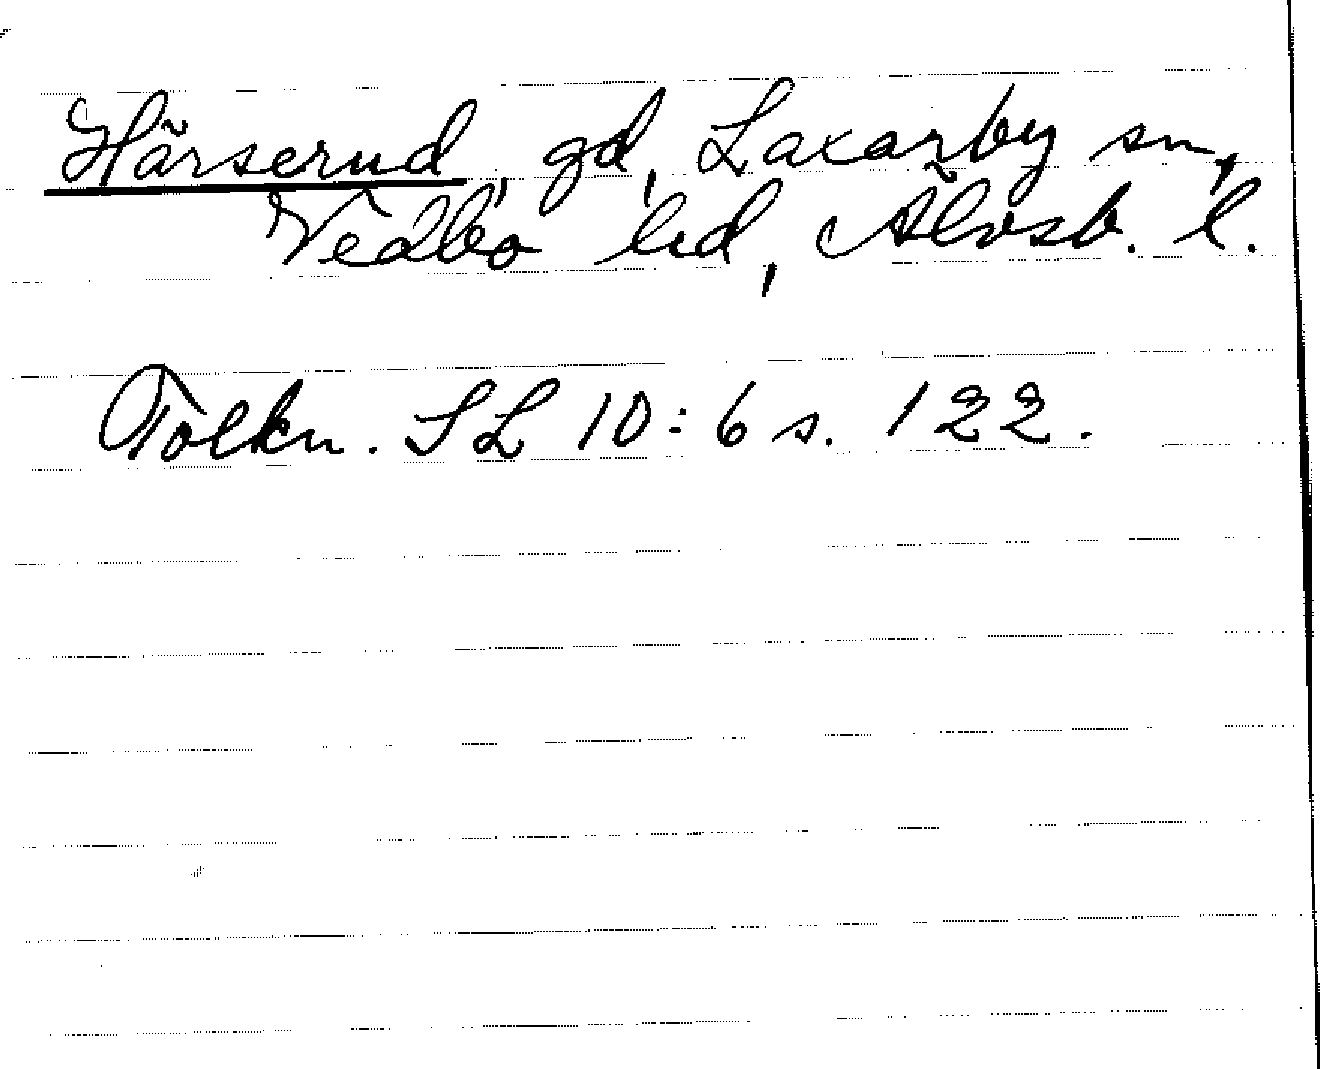 Härserud, gd, Laxarby sn,
Vedbo hd, Älvsb. l.
Tolkn. SL 10:6 s. 122.